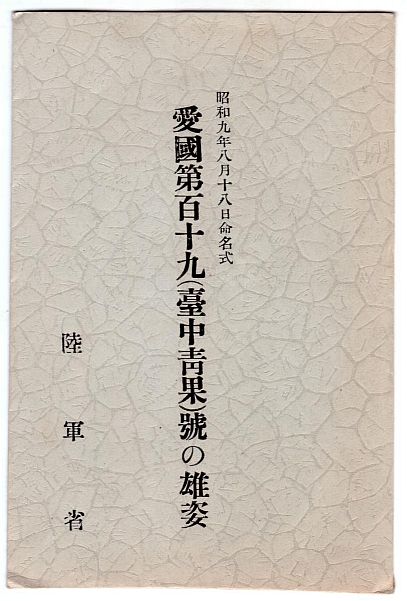 昭和九年八月十八日命名式
愛國第百十九(臺中靑果)號の雄姿
陸軍省